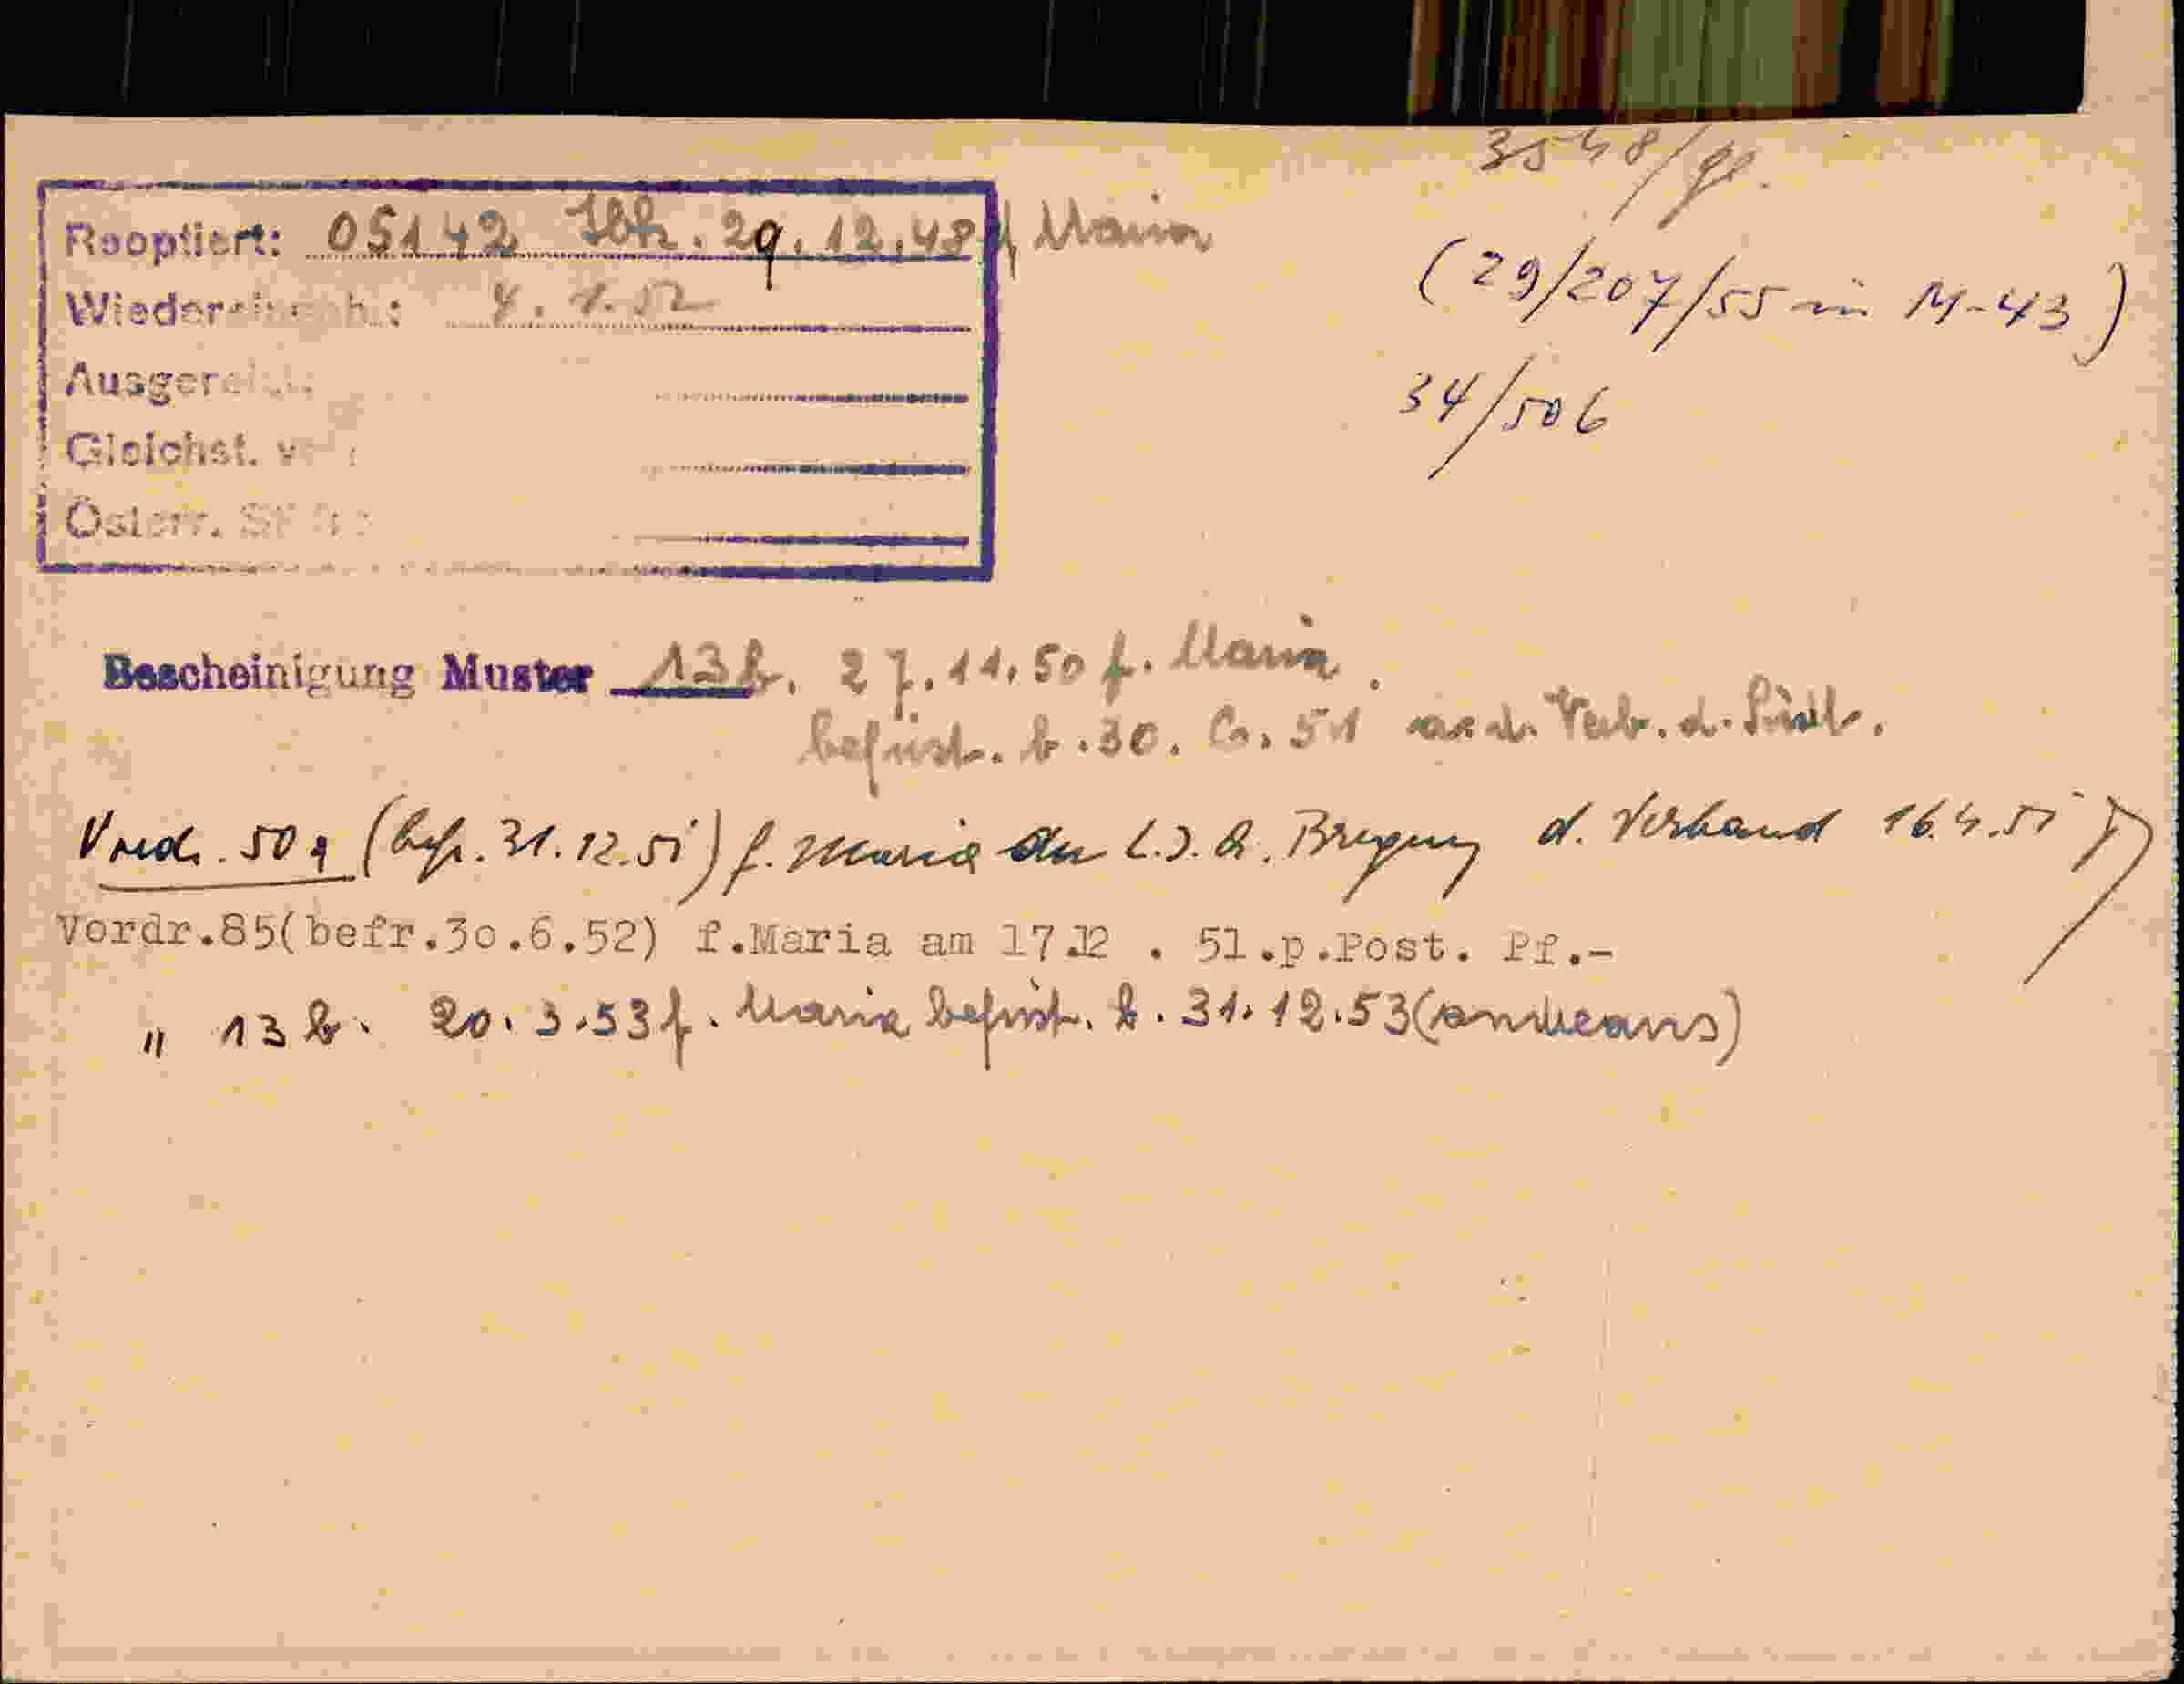 3548/
Reoptiert: 05142 Ibk. 29.12.48 f. Maria
(29/207/55 in M-43)
Wiedereinb.: 4.1.52
34/506
Ausgereicht
Gleichst. v
Österr. St
Bescheinigung Muster 13b. 27.11.50 f. Maria.
befrist. b. 30. 6. 51 an d. Verb. d. Südt.
Vord. 50a (befr. 31.12.51) f. Maria an L.I.R. Bregenz d. Verband 16.4.51
Vordr.85(befr.3o.6.52) f.Maria am 17.12 . 51.p.Post. Pf.-
" 13b. 20.3.53 f. Maria befrist. b. 31.12.53